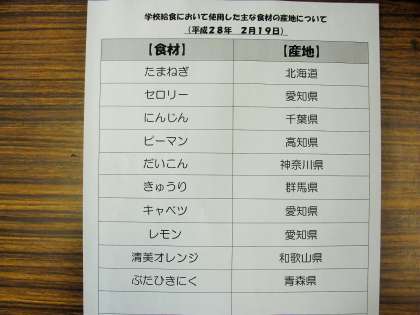 学校給食において使用した主な食材の産地について
（平成２８年　２月１９日）
【食材】　【産地】
たまねぎ　北海道
セロリー　愛知県
にんじん　千葉県
ピーマン　高知県
だいこん　神奈川県
きゅうり　群馬県
キャベツ　愛知県
レモン　愛知県
清美オレンジ　和歌山県
ぶたひきにく　青森県